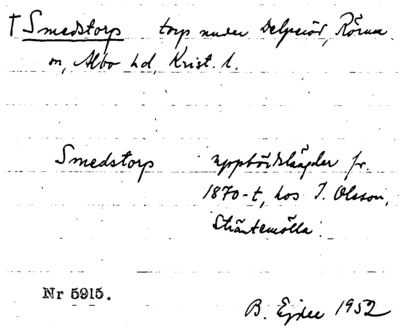 †Smedstorp torp under Delperöd, Rörum
sn, Albo hd, Krist. l.
Smedstorp uppbördslängder fr.
1870-t, hos J. Olsson,
Skäntemölla.
Nr 5915.
B. Ejder 1952